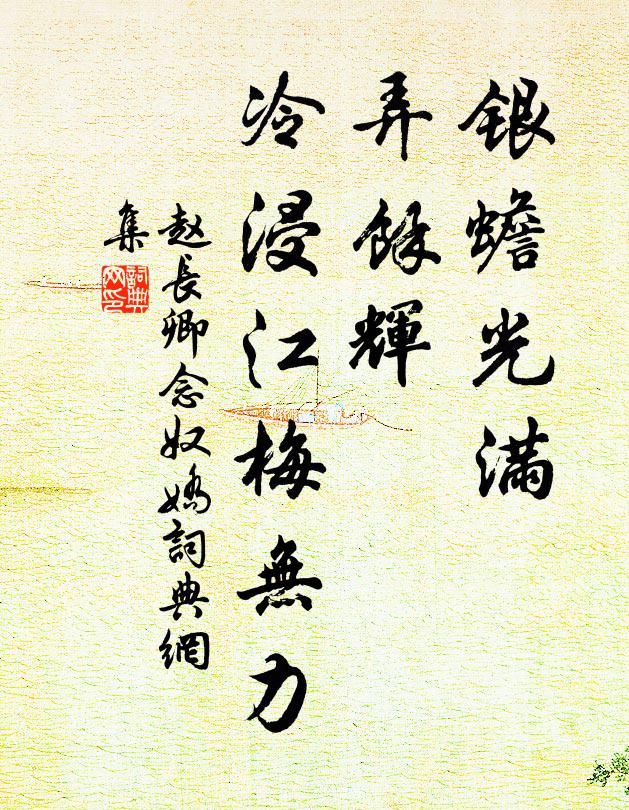 银蟾光满
弄餘輝
冷浸江梅無力
赵長卿念奴嬌詞典網
集
詞典
网印